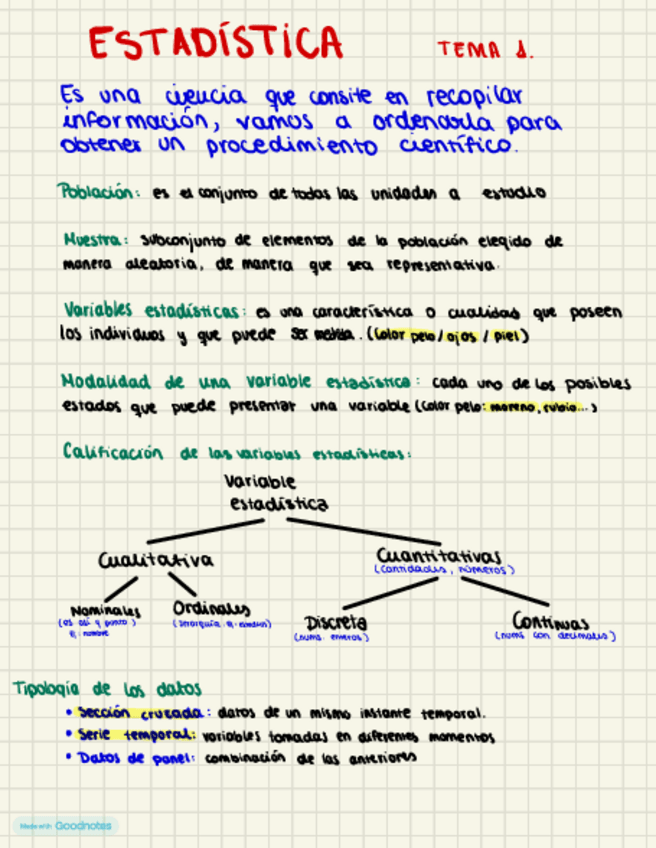 ESTADÍSTICA TEMA 1.
Es una ciencia que consite en recopilar
información, vamos a ordenarla para
obtener un procedimiento científico.
Población: es el conjunto de todas las unidades a estudio
Muestra: subconjunto de elementos de la población elegido de
manera aleatoria, de manera que sea representativa.
Variables estadísticas: es una característica o cualidad que poseen
los individuos y que puede ser medida. (Color pelo / ojos / piel)
Modalidad de una variable estadística: cada uno de los posibles
estados que puede presentar una variable (Color pelo: moreno, rubio...)
Calificación de las variables estadísticas:
Variable
estadística
Cualitativa Cuantitativas
(cantidades, números)
Nominales Ordinales Discreta Continuas
(es así y punto) (jerarquía ej.) (nums. enteros) (nums con decimales)
ej: nombre
Tipología de los datos
• Sección cruzada: datos de un mismo instante temporal.
• Serie temporal: variables tomadas en diferentes momentos
• Datos de panel: combinación de las anteriores
Made with Goodnotes